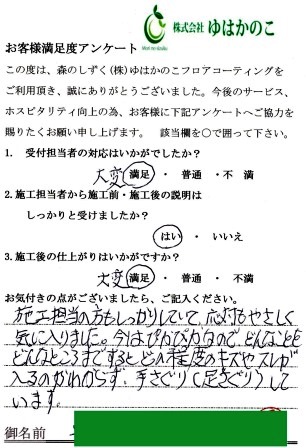 株式会社 ゆはかのこ
お客様満足度アンケート
この度は、森のしずく(株)ゆはかのこフロアコーティングを
ご利用頂き、誠にありがとうございました。今後のサービス、
ホスピタリティ向上の為、お客様に下記アンケートへご協力を
賜りたくお願い申し上げます。 該当欄を〇で囲って下さい。
1. 受付担当者の対応はいかがでしたか?
大変 満足 ・ 普通 ・ 不満
2. 施工担当者から施工前・施工後の説明は
しっかりと受けましたか?
はい ・ いいえ
3. 施工後の仕上がりはいかがですか?
大変 満足 ・ 普通 ・ 不満
お気付きの点がございましたら、ご記入ください。
施工担当の方もしっかりしていて、応対もやさしく
気に入りました。今はぴかぴかなので、どんなことを
どんなところまですると、どの程度のキズやスレが
入るのかわからず、手さぐり(足さぐり)して
います。
御名前